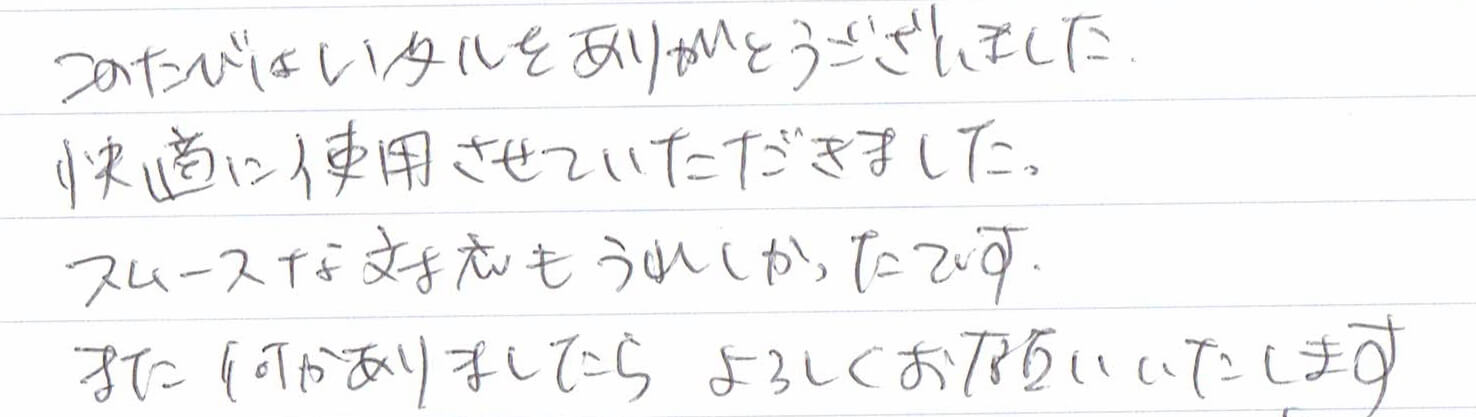 このたびはレンタルをありがとうございました.
快適に使用させていただきました。
スムースな対応もうれしかったです.
また何かありましたらよろしくお願いいたします